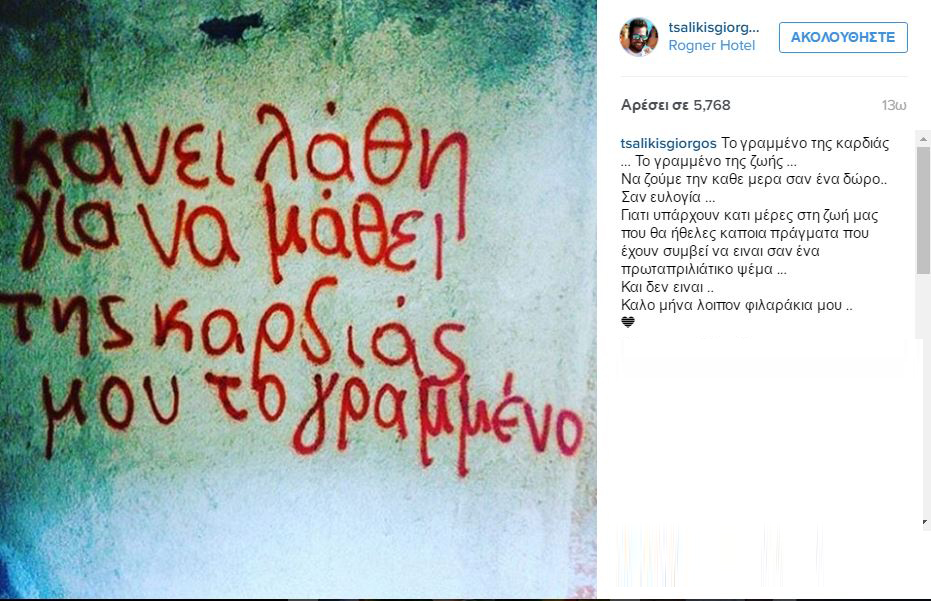 κάνει λάθη
για να μάθει
της καρδιάς
μου το γραμμένο
tsalikisgiorg...
Rogner Hotel
ΑΚΟΛΟΥΘΗΣΤΕ
Αρέσει σε 5,768
13ω
tsalikisgiorgos Το γραμμένο της καρδιάς
... Το γραμμένο της ζωής ...
Να ζούμε την καθε μερα σαν ένα δώρο..
Σαν ευλογία ...
Γιατι υπάρχουν κατι μέρες στη ζωή μας
που θα ήθελες καποια πράγματα που
έχουν συμβεί να ειναι σαν ένα
πρωταπριλιάτικο ψέμα ...
Και δεν ειναι ..
Καλο μήνα λοιπον φιλαράκια μου ..